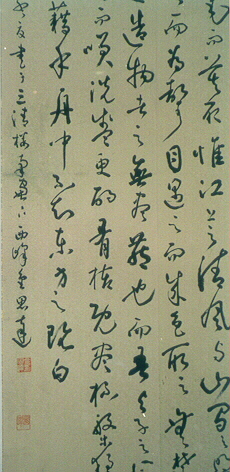 毛而莫取惟江上之清風与山間之明
之而為聲目遇之而成色取之無禁
造物者之無盡藏也而吾与子之所
而唉洗盞更酌肴核既盡杯盤狼
藉乎舟中不知東方之既白
書于三清樓